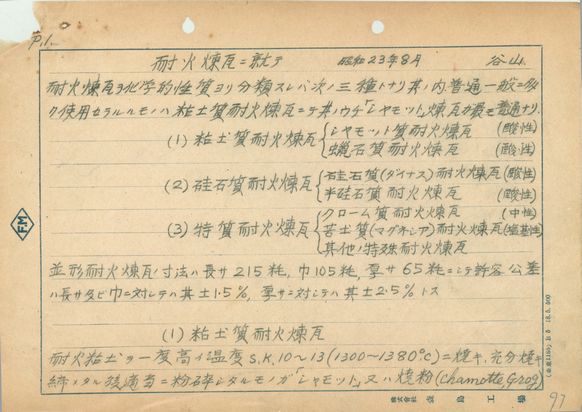 P.1.
耐火煉瓦ニ就テ 昭和23年8月 谷山
耐火煉瓦ヲ化学的性質ヨリ分類スレバ次ノ三種トナリ其ノ内普通一般ニ多
ク使用セラルルモノハ粘土質耐火煉瓦ニテ其ノウチ「シャモット」煉瓦ガ最モ普通ナリ.
(1) 粘土質耐火煉瓦 シャモット質耐火煉瓦 (酸性)
蠟石質耐火煉瓦 (酸性)
(2) 硅石質耐火煉瓦 硅石質(ダイナス)耐火煉瓦 (酸性)
半硅石質耐火煉瓦 (酸性)
(3) 特質耐火煉瓦 クローム質耐火煉瓦 (中性)
苦土質(マグネシア)耐火煉瓦 (塩基性)
其他ノ特殊耐火煉瓦
並形耐火煉瓦ノ寸法ハ長サ215粍, 巾105粍, 厚サ65粍ニシテ許容公差
ハ長サ及ビ巾ニ対シテハ其±1.5%, 厚サニ対シテハ其±2.5%トス
(1) 粘土質耐火煉瓦
耐火粘土ヲ一度高イ温度S.K.10~13(1300~1380°C)ニ焼キ, 充分焼キ
締メタル後適当ニ粉砕シタルモノガ「シャモット」又ハ焼粉(chamotte Grog)
FM
株式会社 島工場
97